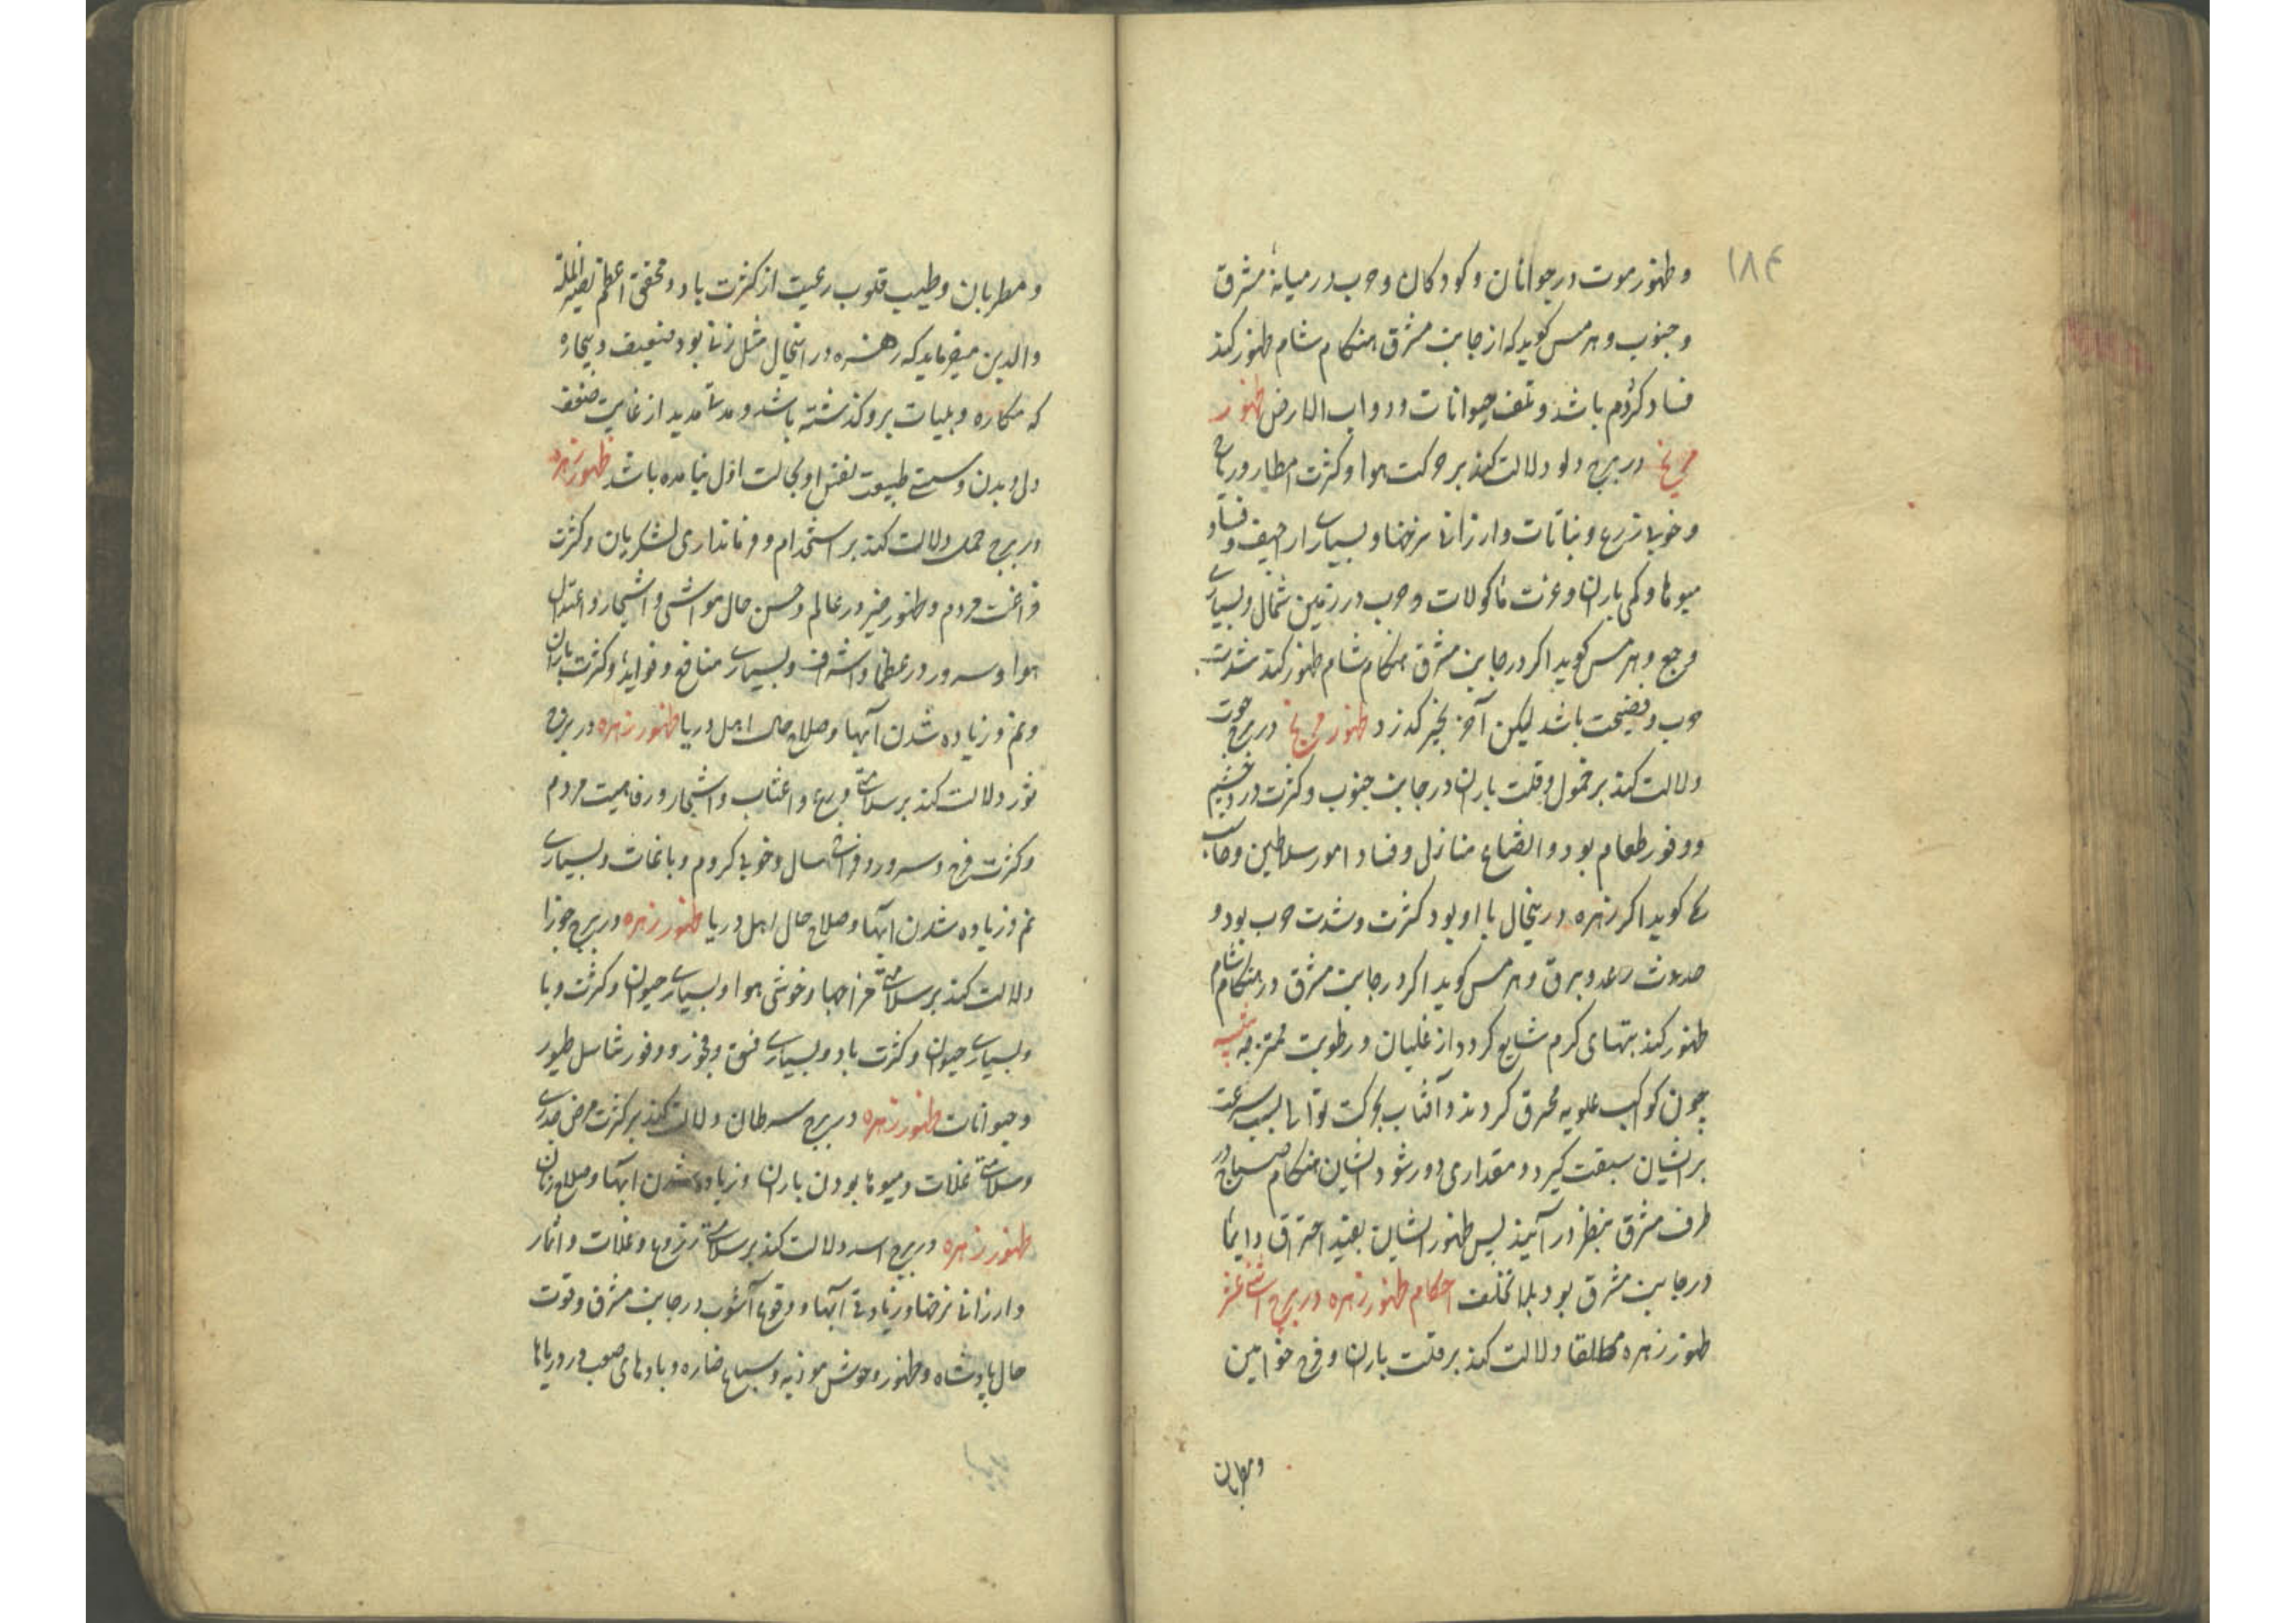 ۱۸۴
و ظهور موت در جوانان و کودکان و حرب در میانهٔ مشرق
و جنوب و هرمس کوید که از جانب مشرق هنکام شام ظهور کند
فساد کردم باشد و تلف حیوانات و دواب الارض ظهور
مریخ در برج دلو دلالت کند بر حرکت هوا و کثرت امطار و ریاح
و خوبی زرع و نباتات و ارزانی نرخها و بسیاری اراجیف و فساد
میوها و کمی باران و عزت ماکولات و حرب در زمین شمال و بسیاری
وجع و هرمس کوید اکر در جانب مشرق هنکام شام ظهور کند شدت
حرب و فضیحت باشد لیکن آخر بخیر کذرد ظهور مریخ در برج حوت
دلالت کند بر خمول و قلت باران در جانب جنوب و کثرت درد چشم
و وفور طعام بود و اتضاع منازل و فساد امور سلاطین و
کوید اکر زهره درینحال با او بود کثرت و شدت حرب بود و
حدوث رعد و برق و هرمس کوید اکر در جانب مشرق در هنکام شام
ظهور کند تبهای کرم شایع کردد از غلیان و رطوبت ممتزجه تنبیه
چون کواکب علویه محرق کردند و آفتاب بحرکت توالی بسبب سرعت
برایشان سبقت کیرد و مقداری دور شود ایشان هنکام صباح در
طرف مشرق بنظر در آیند پس ظهور ایشان بعید احتراق دایما
در جانب مشرق بود بلا تخلف احکام ظهور زهره در برج اثنی عشر
ظهور زهره مطلقا دلالت کند بر قلت باران و فرح خواتین
و مطربان
و مطربان و طیب قلوب رعیت از کثرت باد و محقق اعظم نصیر الملة
والدین میفرماید که زهره درینحال مثل زنی بود ضعیف و بیچاره
که مکاره و بلیات برو کذشته باشد و مدة مدید از غایت ضعف
دل و بدن و سستی طبیعت نفس او بحالت اول نیامده باشد ظهور زهره
در برج حمل دلالت کند بر استخدام و فرمانداری لشکریان و کثرت
فراغت مردم و ظهور خیر در عالم و حسن حال مواشی و اشجار و اعتدال
هوا و سرور در عظما و اشراف و بسیاری منافع و فواید و کثرت باران
و نم و زیاده شدن آبها و صلاح حال اهل دریا ظهور زهره در برج
ثور دلالت کند بر سلامتی زرع و اعناب و اشجار و رفاهیت مردم
و کثرت فرح و سرور و سال و خوبی کروم و باغات و بسیاری
نم و زیاده شدن ابها و صلاح حال اهل دریا ظهور زهره در برج جوزا
دلالت کند بر سلامتی مزاجها و خوشی هوا و بسیاری حیوان و کثرت وبا
و بسیاری حیوان و کثرت باد و بسیاری فسق و فجور و وفور تناسل طیور
و حیوانات ظهور زهره در برج سرطان دلالت کند بر کثرت مرض جدری
و سلامتی غلات و میوها بودن باران و زیاده شدن ابها و صلاح زنان
ظهور زهره در برج اسد دلالت کند بر سلامتی زرعها و غلات و اثمار
و ارزانی نرخها و زیادتی آبها و وقوع آشوب در جانب مشرق و قوت
حال پادشاه و ظهور وحوش موذیه و سباع ضاره و بادهای صعب در دریاها